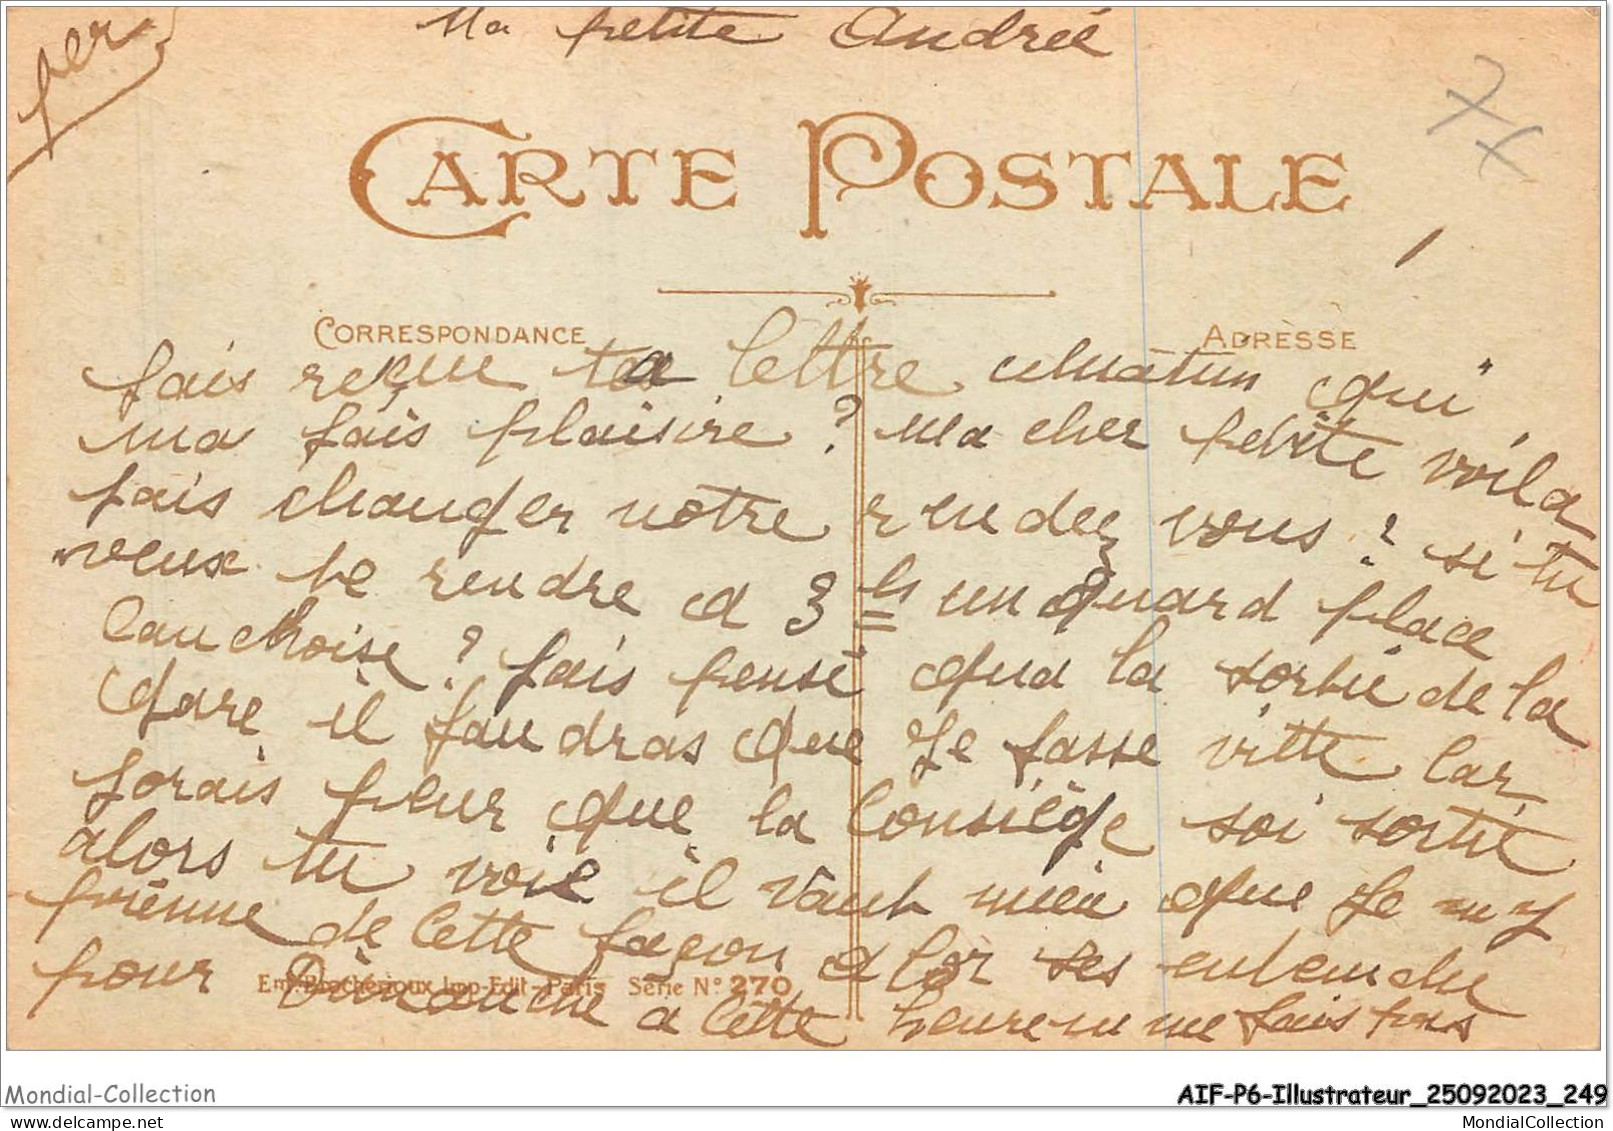 per
Ma petite Andrée
7 x
CARTE POSTALE
CORRESPONDANCE
ADRESSE
fais reçue ta lettre ce matin qui
ma fais plaisire ? ma cher petite voila
fais changer notre rendez vous ? si tu
veux te rendre a 3 h un quard place
Cauchoise ? fais pensé qua la sortie de la
gare il faudras que Je fasse vitte Car
Jorais peur que la Consiège soi sortie
alors tu voie il vaut mieu que Je my
prienne de cette façon alor ses entendue
pour Dimanche a Cette heure ne me fais pas
Em. Brochérioux Imp-Edit-Paris Série N° 270
Mondial-Collection
AIF-P6-Illustrateur_25092023_249
www.mondial-collection.com
MondialCollection